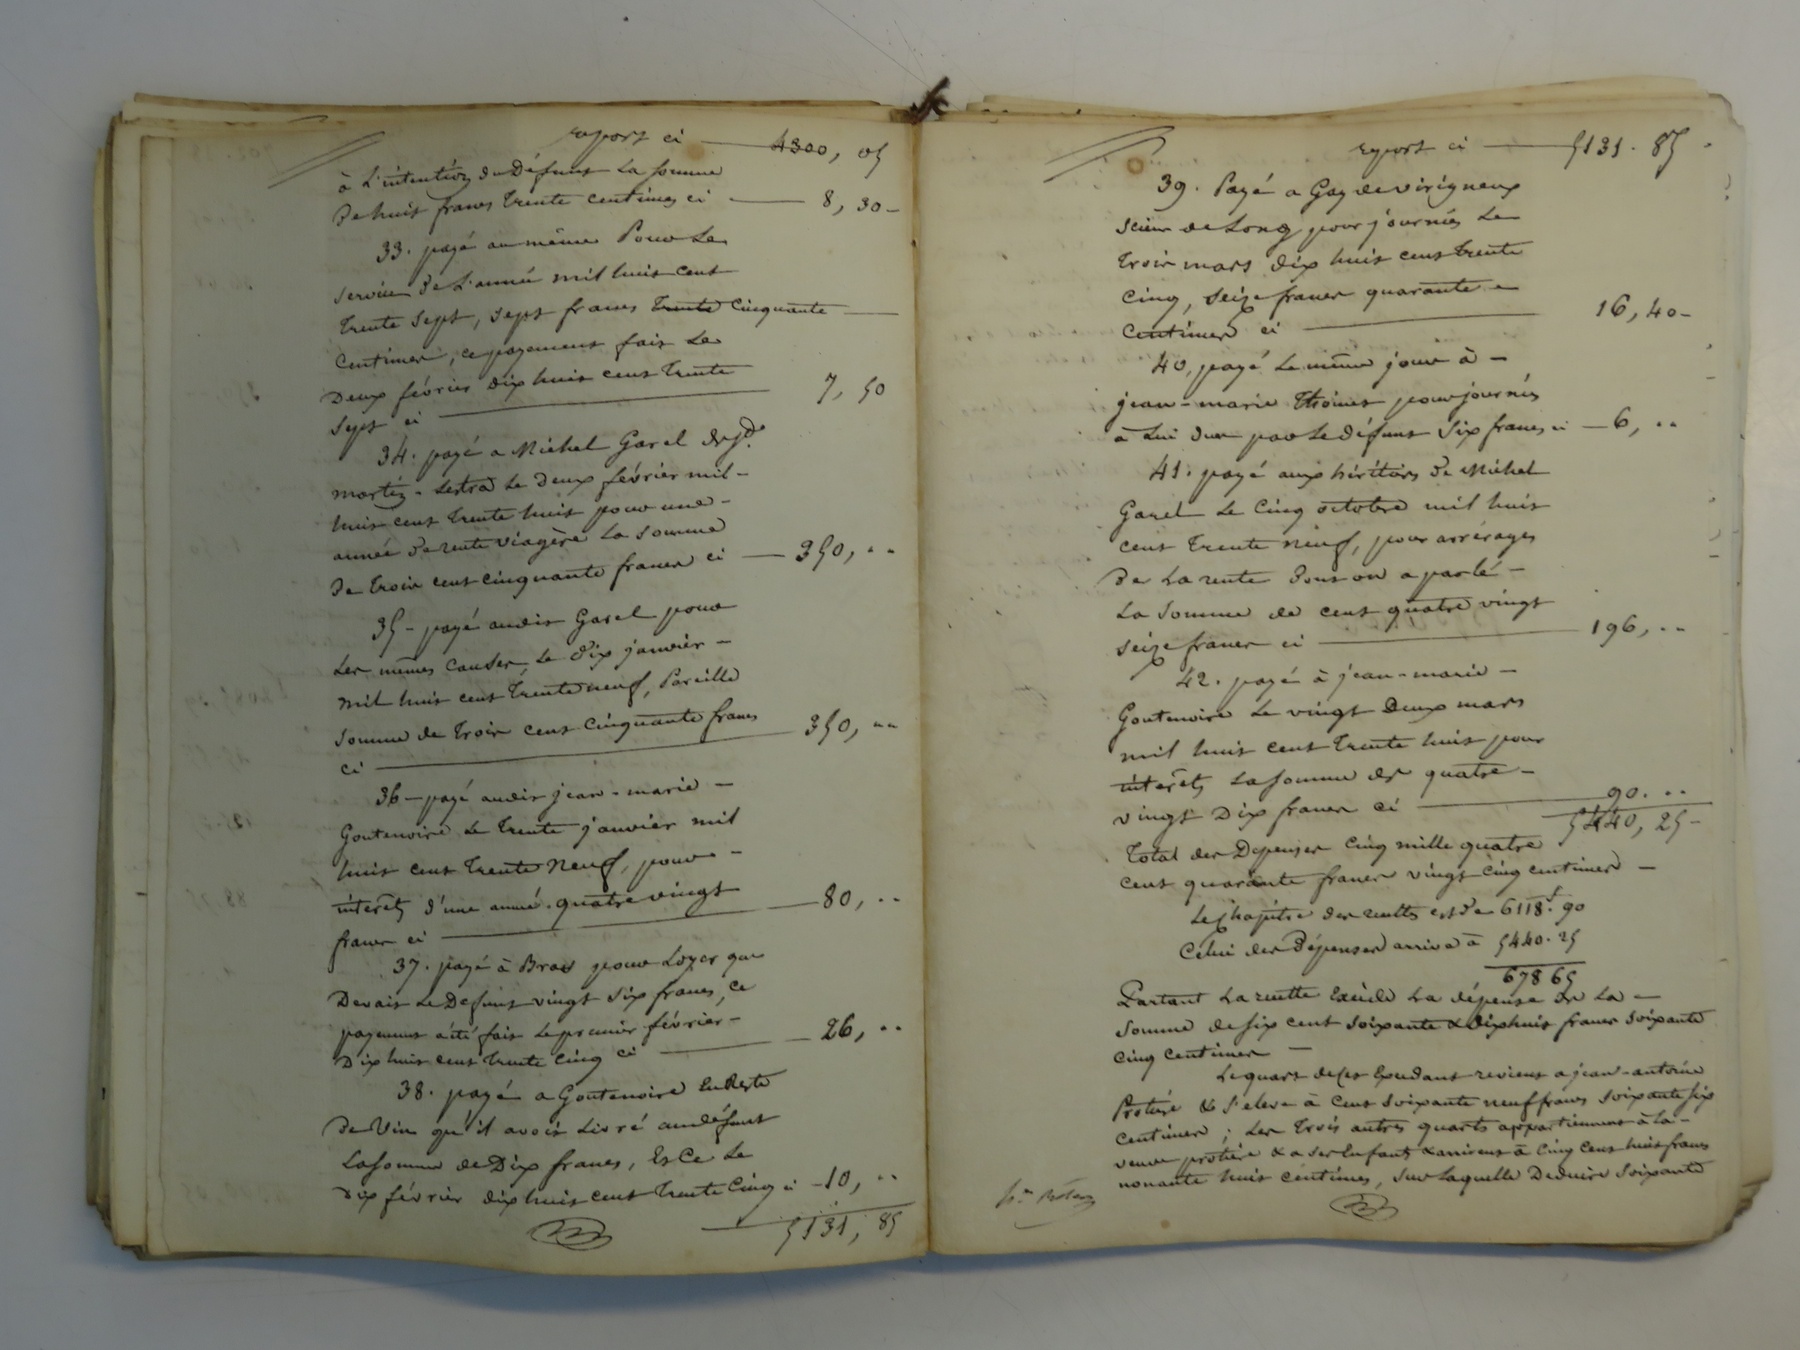 report ci — 4300, 05
à l'intention du Défunt la somme
de huit francs trente centimes ci — 8, 30 -
33. payé au même Pour le
service de l'année mil huit cent
trente sept, sept francs trente cinquante —
centimes, ce payement fait le
Deux février dix huit cent trente
sept ci — 7, 50
34. payé a Michel Garel de
martin - Lestra le deux février mil -
huit cent trente huit pour une -
année de rente viagère la somme
de trois cent cinquante francs ci — 350, ..
35 - payé audit Garel pour
les mêmes causes, le dix janvier -
mil huit cent trente neuf, Pareille
somme de trois cent cinquante francs
ci — 350, ..
36 - payé audit jean - marie -
Goutenoire le trente janvier mil
huit cent trente neuf, pour -
intérêts d'une année. quatre vingt
francs ci — 80, ..
37. payé à Bras pour Loyer que
Devait le Défunt vingt six francs, ce
payement a été fait le premier février -
Dix huit cent trente cinq ci — 26, ..
38. payé a Goutenoire en Reste
de Vin qu'il avoit Livré au défunt
la somme de Dix francs, Et Ce le
dix février dix huit cent trente cinq ci - 10, ..
5131, 85
report ci — 5131. 85
39. Payé a Gay de virigneux
scieur de Long pour journées le
trois mars dix huit cent trente
cinq, seize francs quarante -
centimes ci — 16, 40 -
40, payé le même jour à -
jean - marie Thoinet pour journées
à lui dues par le défunt six francs ci — 6, ..
41. payé aux héritiers de Michel
Garel le cinq octobre mil huit
cent trente neuf, pour arrérages
de la rente dont on a parlé -
la somme de cent quatre vingt
seize francs ci — 196, ..
42. payé à jean - marie -
Goutenoire le vingt deux mars
mil huit cent trente huit pour
intérêts la somme de quatre -
vingt Dix francs ci — 90. ..
5440, 25 -
Total des Depenses cinq mille quatre
cent quarante francs vingt cinq centimes -
Le Chapitre des recettes est de 6118f. 90
Celui des Dépenses arrive à 5440. 25
678 65
Partant la recette Excède la dépense de la -
somme de six cent soixante & dix huit francs soixante
cinq centimes -
Le quart de cet Exedant revient a jean - antoine
Protière & s'eleve à Cent soixante neuf francs soixante six
centimes ; Les trois autres quarts appartiennent à la -
veuve protière & a ses Enfants & arrivent à Cinq Cent huit francs
nonante huit centimes, sur laquelle Deduire soixante